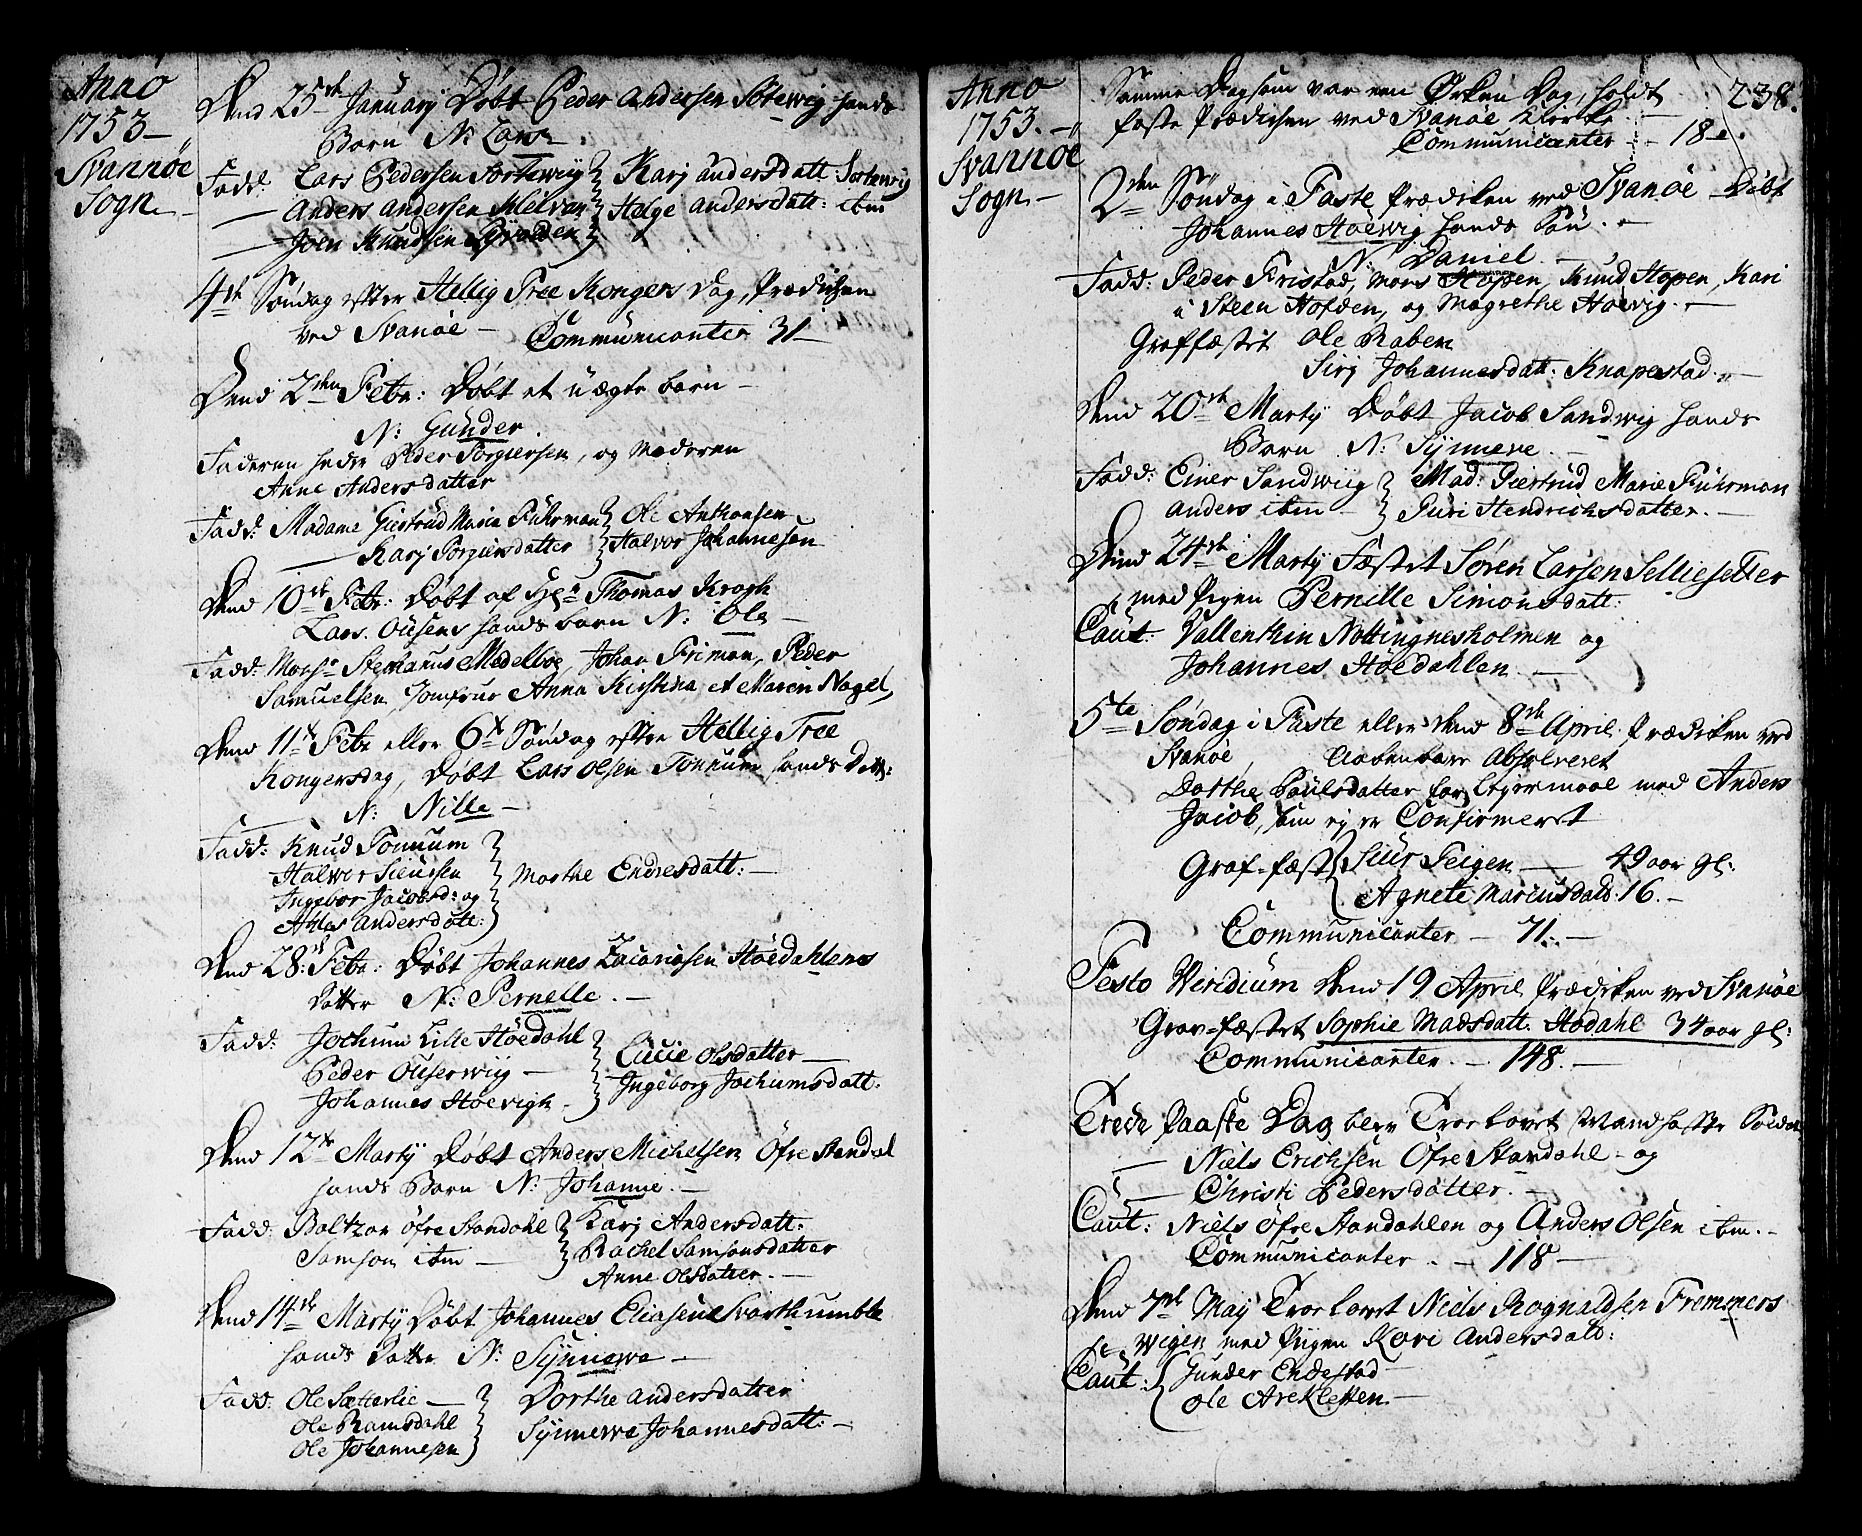 Anno
1753 –
Svannöe
Sogn –
Dend 25de January Döbt Peder Andersen Sötewig hands
Barn N: Lars
Fadd: Lars Pedersen Sortewiig } Karj Andersdatt: Sortewig
– Anders Andersen } Helge Andersdatt: ibm
– Joen Knudsen
4de Söndag efter Hellig Tree Kongers Dag, Prædichen
ved Svanöe – Communicanter 31 –
Dend 2den Febr: Döbt et uægte barn –
N: Gunder.
Faderen heder Peder Torgiersen, og Moderen
Anne Andersdatter
Fadd: Madame Giertrud Maria Fuhrman } Ole Anthonsen
– Karj Torgiersdatter } Halvor Johannesen
Dend 10de Febr: Döbt af Hr Thomas Krogh
Lars Ousens hands barn N: Ole –
Fadd: Monsr Stephanus Medelboe, Johan Friman, Peder
Samuelsen, Jomfrue Anna Kirstina et Maren Nagel,
Dend 11te Febr eller 6te Söndag efter Hellig Tree
Kongersdag, Döbt Lars Olsen Tonnum hands Datt:
N: Nille –
Fadd: Knud Tonnum
Halvor Siursen
Ingebor Jacobsd: og
Ahles Andersdatt: } Marthe Endresdatt: –
Dend 28de Febr: Döbt Johannes Zacariasen Höedahlens
Datter N: Pernelle. –
Fadd: Jochum Lille Höedahl } Lucie Olsdatter –
Peder Ouserwiig – } Ingeborg Jochumsdatt:
Johannes Höevigh –
Dend 12te Martij Döbt Anders Michelsen Öfre Standal
hands Barn N: Johanne. –
Fadd: Baltzar Öfre Standahl } Karj Andersdatt:
Samson ibm – } Rachel Samsonsdatter
Anne Olsdatter. –
Dend 14de Martij Döbt Johannes Eliasen Svarthumble
hands Datter N: Synnewe –
Fadd: Ole Sætterlie – } Dorthe Andersdatter
Ole Ramsdahl } Synnewe Johannesdatt: –
Ole Johannesen
Anno
1753. –
Svannöe
Sogn –
238.
Samme Dag som var een Ørken Dag, holdt
faste Prædichen ved Svanöe Kircke
Communicanter – 18 –
2den Söndag i Faste Prædiken ved Svanöe – Döbt
Johannes Höewig hands Sön. –
N: Daniel. –
Fadd: Peder Fristad, Mons Hopen, Knud Hopen, Kari
i Steen Hofden, og Magrethe Hoevig. –
Graffæstet Ole Raben
Sirj Johannesdatt: Knapestad. –
Dend 20de Martij Döbt Jacob Sandwig hands
Barn N: Synneve. –
Fadd: Einer Sandwiig } Mad: Giertrud Marie Fuhrman
Anders ibm – } Guri Hendrichsdatter. –
Dend 24de Martij Fæstet Sören Larsen Selliesetter
med Pigen Pernille Simonsdatt:
Caut: Vallenthin Nottingnesholmen og
Johannes Höedahlen –
5te Söndag i Faste eller dend 8de April Prædiken ved
Svanöe, Aabenbare Absolveret
Dorthe Poulsdatter for Leyermaal med Anders
Jacob, hun ej er Confirmeret
Graf-fæst { Siur Teigen – 49 aar gl:
Agnete Marcusdatt: 16. –
Communicanter – 71. –
Festo Viridium Dend 19 April Prædiken ved Svanöe
Grav-fæstet Sophie Madsdatt. Hödahl 34 aar gl:
Communicanter. – 148. –
Trede Paaske Dag blev Trorlovet Mandhafte Soldat
– Niels Erichsen Öfre Standahl – og
– Christi Pedersdatter. –
Caut: Niels Öfre Standahlen og Anders Olsen ibm. –
Communicanter. – 118 –
Dend 7de May Trorlovet Niels Rognaldsen Fremmers
Wigen med Pigen Kari Andersdatt:
Caut: { Gunder Endestad
Ole Arekletten –